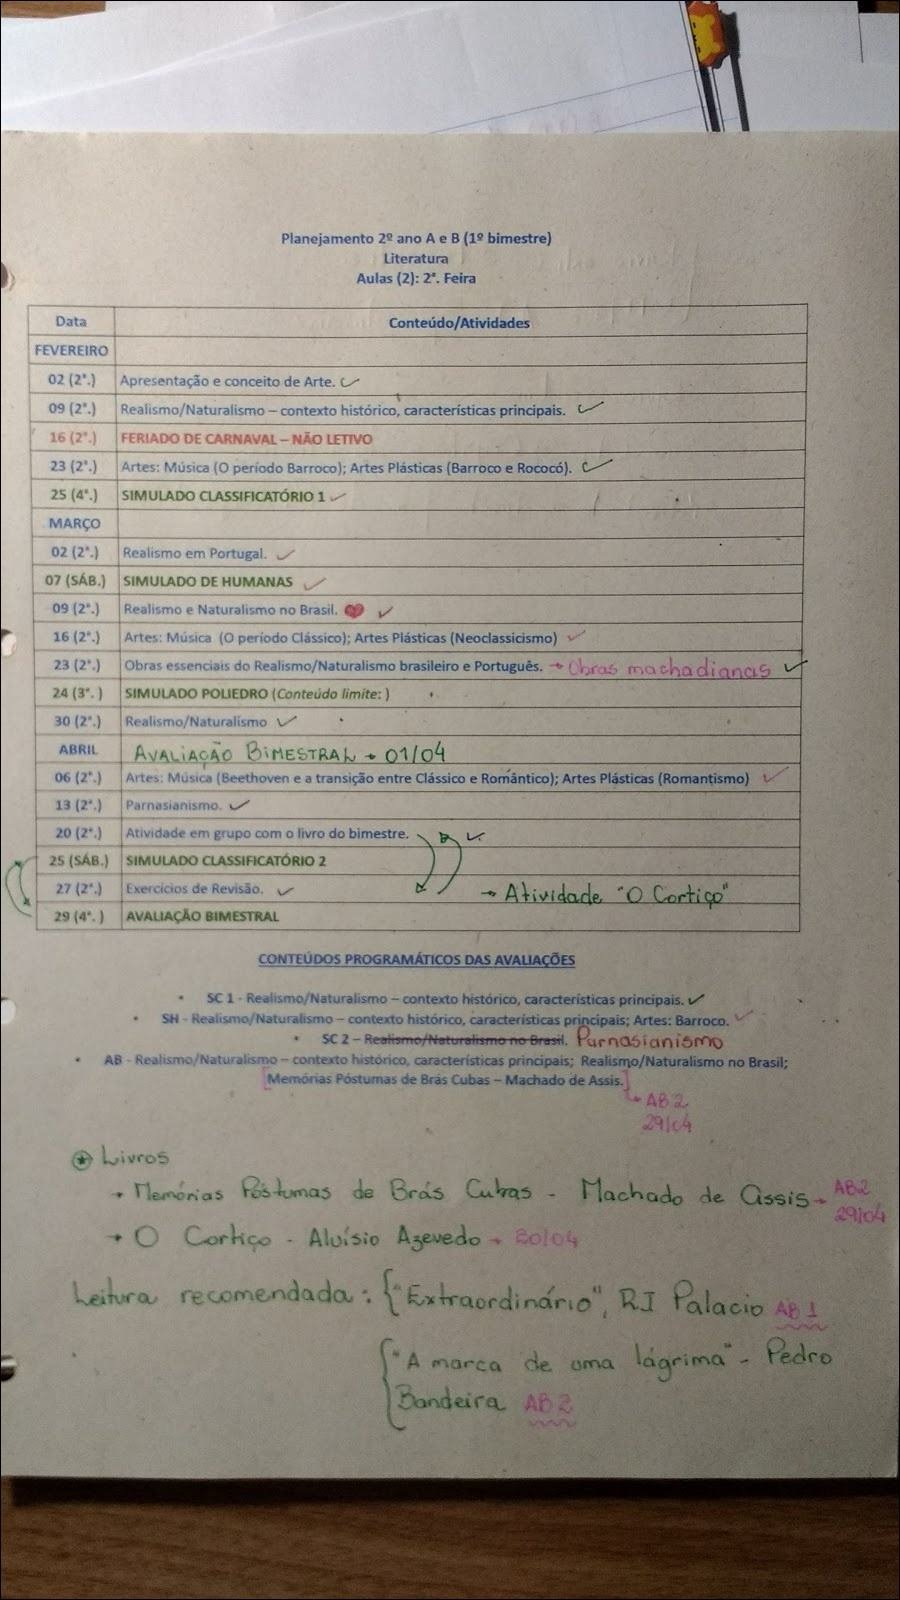 Planejamento 2º ano A e B (1º bimestre)
Literatura
Aulas (2): 2ª. Feira
Data Conteúdo/Atividades
FEVEREIRO
02 (2ª.) Apresentação e conceito de Arte.
09 (2ª.) Realismo/Naturalismo – contexto histórico, características principais.
16 (2ª.) FERIADO DE CARNAVAL – NÃO LETIVO
23 (2ª.) Artes: Música (O período Barroco); Artes Plásticas (Barroco e Rococó).
25 (4ª.) SIMULADO CLASSIFICATÓRIO 1
MARÇO
02 (2ª.) Realismo em Portugal.
07 (SÁB.) SIMULADO DE HUMANAS
09 (2ª.) Realismo e Naturalismo no Brasil.
16 (2ª.) Artes: Música (O período Clássico); Artes Plásticas (Neoclassicismo)
23 (2ª.) Obras essenciais do Realismo/Naturalismo brasileiro e Português. → Obras machadianas
24 (3ª. ) SIMULADO POLIEDRO (Conteúdo limite: )
30 (2ª.) Realismo/Naturalismo
ABRIL AVALIAÇÃO BIMESTRAL → 01/04
06 (2ª.) Artes: Música (Beethoven e a transição entre Clássico e Romântico); Artes Plásticas (Romantismo)
13 (2ª.) Parnasianismo.
20 (2ª.) Atividade em grupo com o livro do bimestre.
25 (SÁB.) SIMULADO CLASSIFICATÓRIO 2
27 (2ª.) Exercícios de Revisão. → Atividade "O Cortiço"
29 (4ª. ) AVALIAÇÃO BIMESTRAL
CONTEÚDOS PROGRAMÁTICOS DAS AVALIAÇÕES
• SC 1 - Realismo/Naturalismo – contexto histórico, características principais.
• SH - Realismo/Naturalismo – contexto histórico, características principais; Artes: Barroco.
• SC 2 – Realismo/Naturalismo no Brasil. Parnasianismo
• AB - Realismo/Naturalismo – contexto histórico, características principais; Realismo/Naturalismo no Brasil;
[Memórias Póstumas de Brás Cubas – Machado de Assis.]
→ AB 2
29/04
Livros
→ Memórias Póstumas de Brás Cubas - Machado de Assis → AB2
29/04
→ O Cortiço - Aluísio Azevedo → 20/04
Leitura recomendada: { "Extraordinário", RJ Palacio AB 1
{ "A marca de uma lágrima" - Pedro
Bandeira AB 2